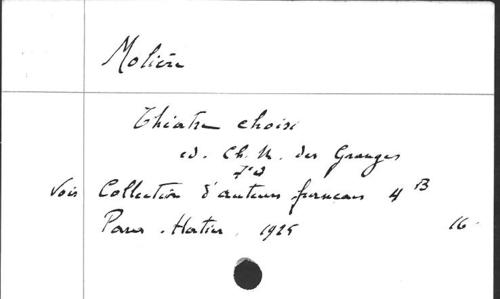 Molière
Théatre choisi
ed. Ch. M. des Granges
7e ed
Vois Collection d'auteurs francais 4 B
Paris. Hatier. 1925 16